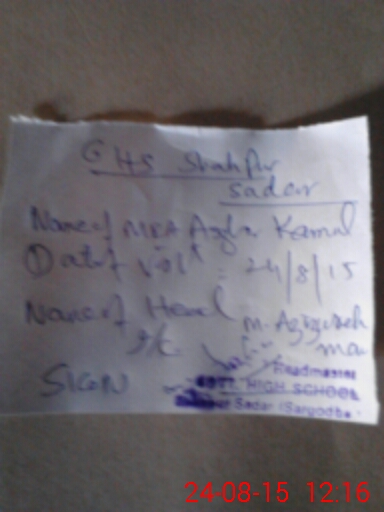 GHS Shahpur
Sadar
Name of MEA Azhar Kamal
Date of Visit : 24/8/15
Name of Head
M.
SIGN
Headmaster
GOVT. HIGH SCHOOL
Sadar (Sargodha
24-08-15 12:16